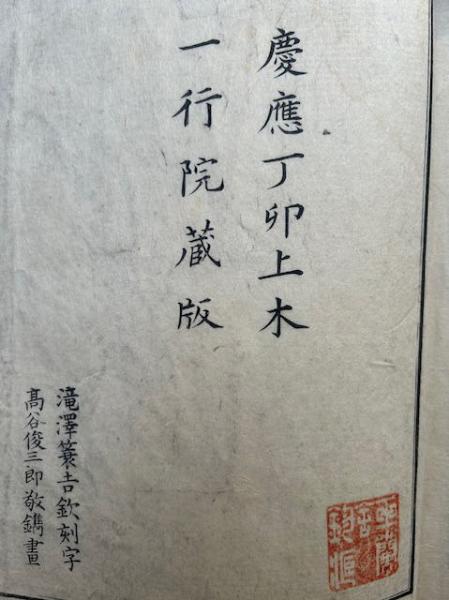 慶應丁卯上木
一行院蔵版
滝澤簑吉欽刻字
髙谷俊三郎敬鐫畫